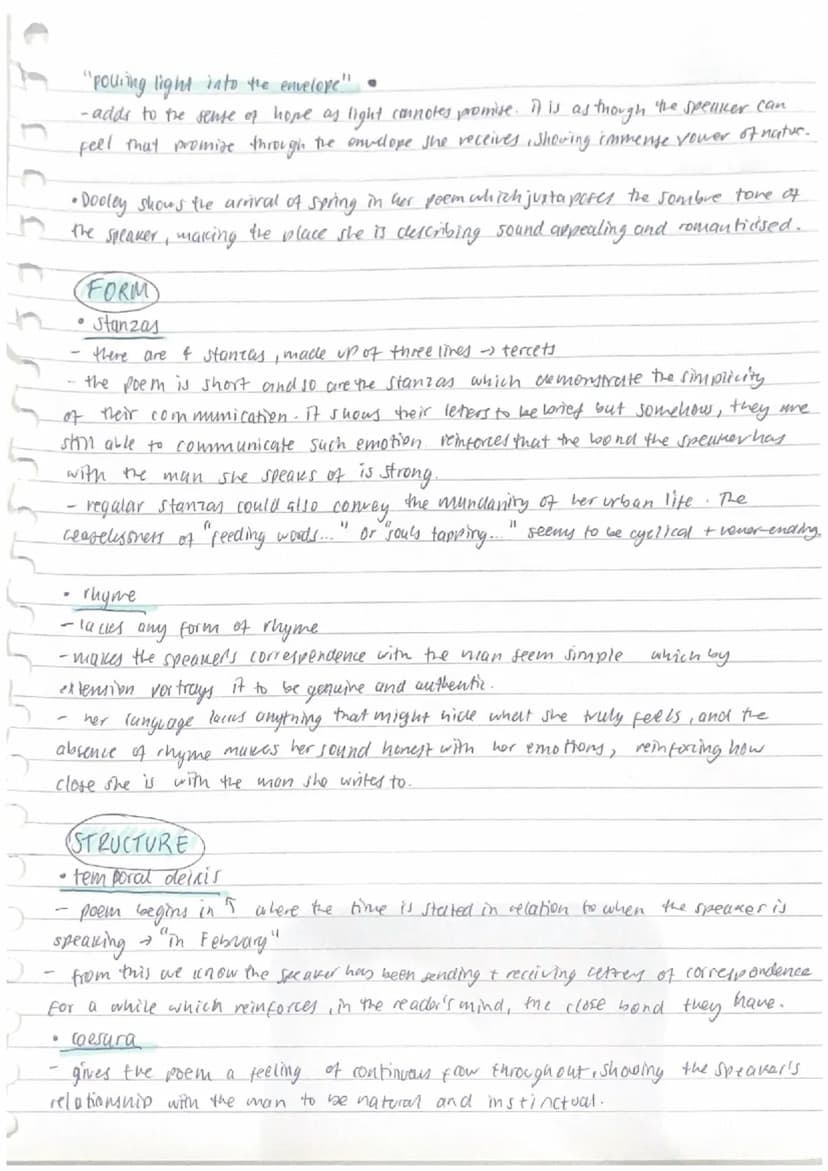 "pouring light into the envelope" •
- adds to the sense of hope as light connotes promise. it is as though the speaker can
feel that promise through the envelope she receives, showing immense power of natue.
• Dooley shows the arrival of spring in her poem which juxtaposes the sombre tone of
the speaker, making the place she is describing sound appealing and romanticised.
FORM
• stanzas
- there are 4 stanzas, made up of three lines → tercets
- the poem is short and so are the stanzas which demonstrate the simplicity
of their communication. it shows their letters to be brief but somehow, they are
still able to communicate such emotion reinforces that the bond the speaker has
with the man she speaks of is strong.
- regular stanzas could also convey the mundanity of her urban life. The
ceaselessness of "feeding words..." or "souls tapping..." seems to be cyclical + never-ending.
• rhyme
- lacks any form of rhyme
- makes the speaker's correspondence with the man seem simple which by
extension portrays it to be genuine and authentic.
- her language lacks anything that might hide what she truly feels, and the
absence of rhyme makes her sound honest with her emotions, reinforcing how
close she is with the man she writes to.
STRUCTURE
• temporal deixis
- poem begins in ↑ where the time is stated in relation to when the speaker is
speaking → "in Febrary"
- from this we know the speaker has been sending + receiving letters of correspondence
for a while which reinforces, in the reader's mind, the close bond they have.
• caesura
- gives the poem a feeling of continuous flow throughout, showing the speaker's
relationship with the man to be natural and instinctual.